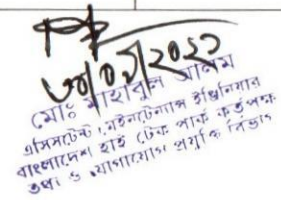 ৩০/০১/২০২১
মোঃ মাহাবুল আলম
এসিসটেন্ট মেইনটেন্যান্স ইঞ্জিনিয়ার
বাংলাদেশ হাই টেক পার্ক কর্তৃপক্ষ
তথ্য ও যোগাযোগ প্রযুক্তি বিভাগ